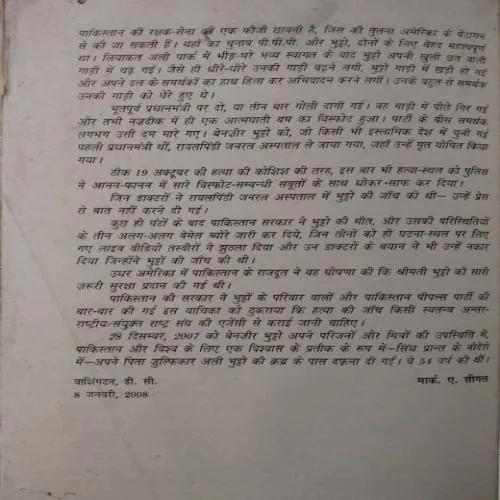 पाकिस्तान की रक्षक-सेना की एक फौजी छावनी है, जिस की तुलना अमेरिका के पेंटागन
से की जा सकती हैं। यहाँ का चुनाव पी.पी.पी. और भुट्टो, दोनों के लिए बेहद महत्त्वपूर्ण
था। लियाकत अली पार्क में भीड़-भरे भव्य स्वागत के बाद भुट्टो अपनी खुली छत वाली
गाड़ी में चढ़ गईं। जैसे ही धीरे-धीरे उनकी गाड़ी बढ़ने लगी, भुट्टो गाड़ी में खड़ी हो गईं
और अपने दल के समर्थकों का हाथ हिला कर अभिवादन करने लगीं। उनके बहुत-से समर्थक
उनकी गाड़ी को घेरे हुए थे।
भूतपूर्व प्रधानमन्त्री पर दो, या तीन बार गोली दागी गई। वह गाड़ी में पीछे गिर गईं
और तभी नज़दीक में ही एक आत्मघाती बम का विस्फोट हुआ। पार्टी के बीस समर्थक
लगभग उसी दम मारे गए। बेनज़ीर भुट्टो को, जो किसी भी इस्लामिक देश में चुनी गई
पहली प्रधानमन्त्री थीं, रावलपिंडी जनरल अस्पताल ले जाया गया, जहाँ उन्हें मृत घोषित किया
गया।
ठीक 19 अक्टूबर की हत्या की कोशिश की तरह, इस बार भी हत्या-स्थल को पुलिस
ने आनन-फानन में सारे विस्फोट-सम्बन्धी सबूतों के साथ धोकर-साफ कर दिया।
जिन डाक्टरों ने रावलपिंडी जनरल अस्पताल में भुट्टो की जाँच की थी— उन्हें प्रेस
से बात नहीं करने दी गई।
कुछ ही घंटों के बाद पाकिस्तान सरकार ने भुट्टो की मौत, और उसकी परिस्थितियों
के तीन अलग-अलग बेमेल ब्योरे जारी कर दिये, जिन तीनों को ही घटना-स्थल पर लिए
गए लाइव वीडियो तस्वीरों ने झुठला दिया और उन डाक्टरों के बयान ने भी उन्हें नकार
दिया जिन्होंने भुट्टो की जाँच की थी।
उधर अमेरिका में पाकिस्तान के राजदूत ने यह घोषणा की कि श्रीमती भुट्टो को सारी
ज़रूरी सुरक्षा प्रदान की गई थी।
पाकिस्तान की सरकार ने भुट्टो के परिवार वालों और पाकिस्तान पीपल्स पार्टी की
बार-बार की गई इस याचिका को ठुकराया कि हत्या की जाँच किसी स्वतन्त्र अन्तर-
राष्ट्रीय/संयुक्त राष्ट्र संघ की एजेंसी से कराई जानी चाहिए।
28 दिसम्बर, 2007 को बेनज़ीर भुट्टो अपने परिजनों और मित्रों की उपस्थिति में,
पाकिस्तान और विश्व के लिए एक विश्वास के प्रतीक के रूप में—सिंध प्रान्त के नौदेरो
में—अपने पिता जुल्फिकार अली भुट्टो की क़ब्र के पास दफ़ना दी गईं। वे 54 वर्ष की थीं।
वाशिंगटन, डी. सी. मार्क. ए. सीगल
8 जनवरी, 2008